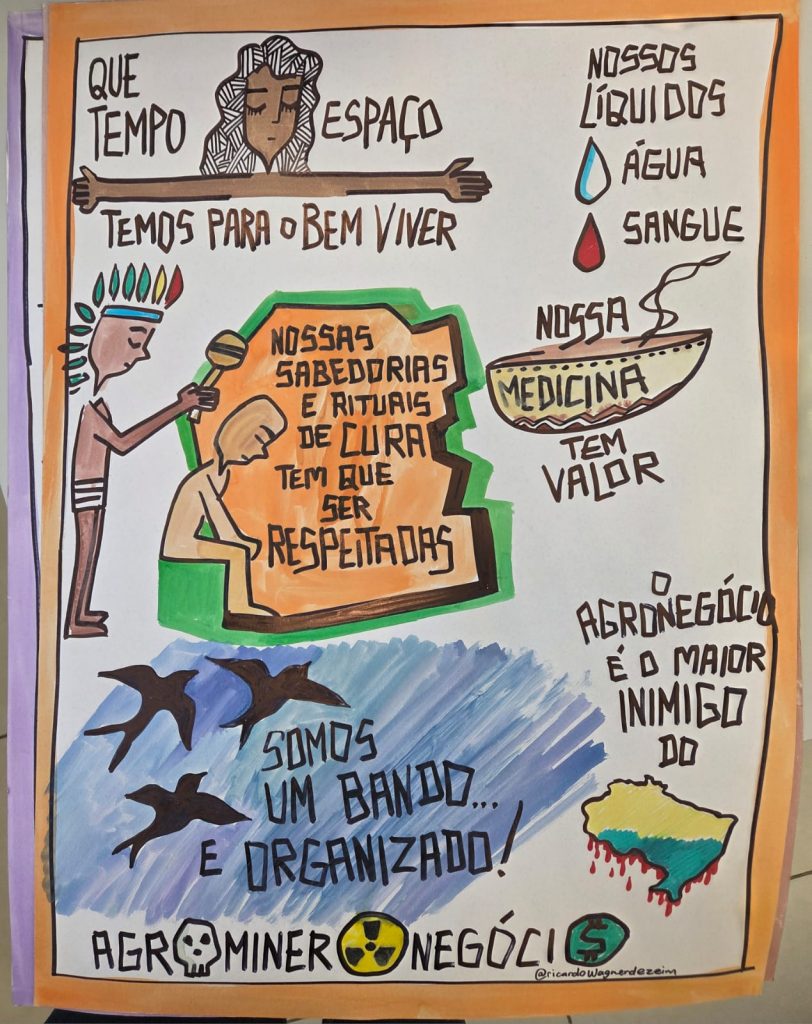 QUE
TEMPO ESPAÇO
TEMOS PARA O BEM VIVER
NOSSOS
LÍQUIDOS
ÁGUA
SANGUE
NOSSAS
SABEDORIAS
E RITUAIS
DE CURA
TEM QUE
SER
RESPEITADAS
NOSSA
MEDICINA
TEM
VALOR
O
AGRONEGÓCIO
É O MAIOR
INIMIGO
DO
SOMOS
UM BANDO...
E ORGANIZADO!
AGROMINERONEGÓCIO
@ricardowagnerdezeim